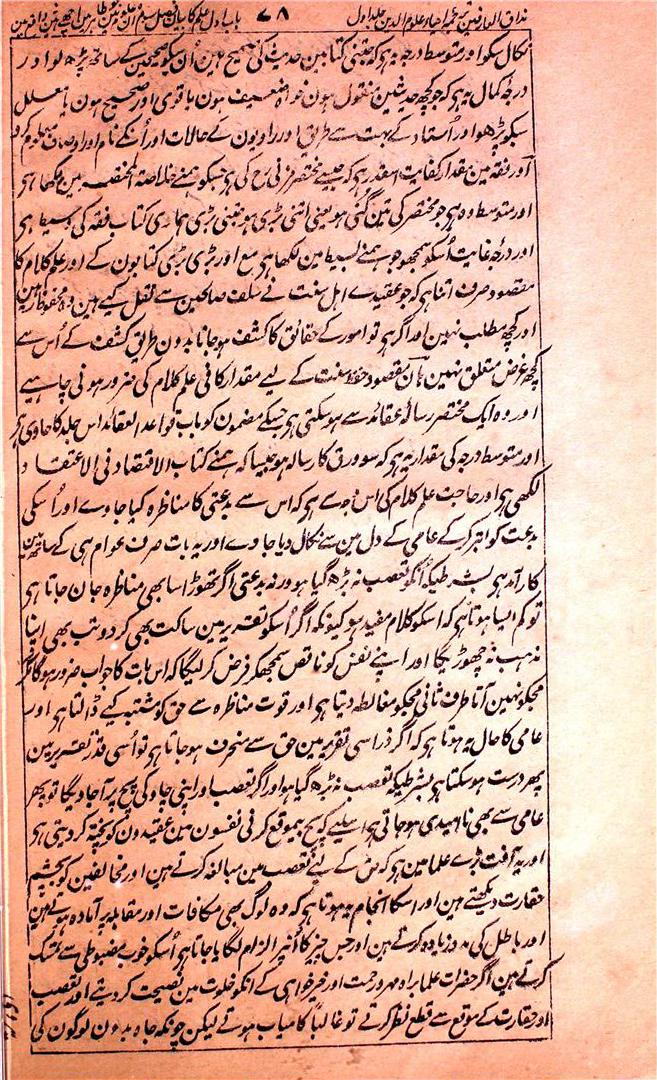 مذاق العارفین ترجمہ احیاء علوم الدین جلد اول ۷۸ باب اول علم کا بیان فصل
نکال سکو اور متوسط درجہ یہ ہی کہ جتنی کتابین حدیث کی صحیح ہین اُن کو صحیحین کے ساتھ پڑھ لو اور
درجۂ کمال یہ ہی کہ جو کچھ حدیثین منقول ہون خواہ ضعیف ہون یا قوی اور صحیح ہون یا معلل
سبکو پڑھو اور اُستاد کے بہت سے طریق اور راویون کے حالات اور اُنکے نام اور اوصاف معلوم کرو
اور فقہ مین مقدار کفایت اسقدر ہی کہ جیسے مختصر مزنی رح کی ہی جسکو ہمنے خلاصۃ المختصر مین لکھا ہی
اور متوسط وہ ہی جو مختصر کی تین گنی ہو یعنی اتنی بڑی ہو جتنی بڑی ہماری کتاب فقہ کی وسیط ہی
اور درجۂ غایت اُسکو سمجھو جو ہمنے بسیط مین لکھا ہی مع اور بڑی بڑی کتابون کے اور علم کلام کا
مقصود صرف اتنا ہی کہ جو عقیدے اہل سنت نے سلف صالحین سے نقل کیے ہین وہ محفوظ رہین
اور کچھ مطلب نہین اور اگر ہی تو امور کے حقائق کا کشف ہو جانا بدون طریق کشف کے اُس سے
کچھ غرض متعلق نہین ہان مقصود حفظ سنت کے لیے مقدار کافی علم کلام کی ضرور ہونی چاہیے
اور وہ ایک مختصر رسالۂ عقائد سے ہو سکتی ہی جسکے مضمون کو باب قواعد العقائد اس جلد کا حاوی ہی
اور متوسط درجہ کی مقدار یہ ہی کہ سو ورق کا رسالہ ہو جیسا کہ ہمنے کتاب الاقتصاد فی الاعتقاد
لکھی ہی اور حاجت علم کلام کی اس وجہ سے ہی کہ اس سے بدعتی کا مناظرہ کیا جاوے اور اُسکی
بدعت کو ابتر کر کے عامی کے دل مین سے نکال دیا جاوے اور یہ بات صرف عوام ہی کے ساتھ مین
کارآمد ہی بشرطیکہ اُنکو تعصب نہ بڑھ گیا ہو ورنہ بدعتی اگر تھوڑا سا بھی مناظرہ جان جاتا ہی
تو کم ایسا ہوتا ہی کہ اسکو کلام مفید ہو کیونکہ اگر اُسکو تقریر مین ساکت بھی کر دو تب بھی اپنا
مذہب نہ چھوڑیگا اور اپنے نفس کو ناقص سمجھکر فرض کر لیگا کہ اس بات کا جواب ضرور ہوگا مگر
مجکو نہین آتا طرف ثانی مجکو مغالطہ دیتا ہی اور قوت مناظرہ سے حق کو مشتبہ کیے ڈالتا ہی اور
عامی کا حال یہ ہوتا ہی کہ اگر ذرا سی تقریر مین حق سے منحرف ہو جاتا ہی تو اُسی قدر تقریر مین
پھر درست ہو سکتا ہی بشرطیکہ تعصب نہ بڑھ گیا ہو اور اگر تعصب اور اپنی چاہ کی پچ پر آجاویگا تو پھر
عامی سے بھی نا امیدی ہو جاتی ہی اسلیے کہ پچ بیموقع کرنی نفسون مین عقیدون کو پختہ کر دیتی ہی
اور یہ آفت بڑے علما مین ہی کہ حق کے لیے تعصب مین مبالغہ کرتے ہین اور مخالفین کو بچشم
حقارت دیکھتے ہین اور اسکا انجام یہ ہوتا ہی کہ وہ لوگ بھی مکافات اور مقابلہ پر آمادہ ہوتے ہین
اور باطل کی مدد زیادہ کرتے ہین اور جس چیز کا اُنپر الزام لگایا جاتا ہی اُسکو خوب مضبوطی سے تمسک
کرتے ہین اگر حضرات علما براہ مہر و رحمت اور خیر خواہی کے انکو خلوت مین نصیحت کر دیتے اور تعصب
اور حقارت کے موقع سے قطع نظر کرتے تو غالباً کامیاب ہوتے لیکن چونکہ جاہ بدون لوگون کی